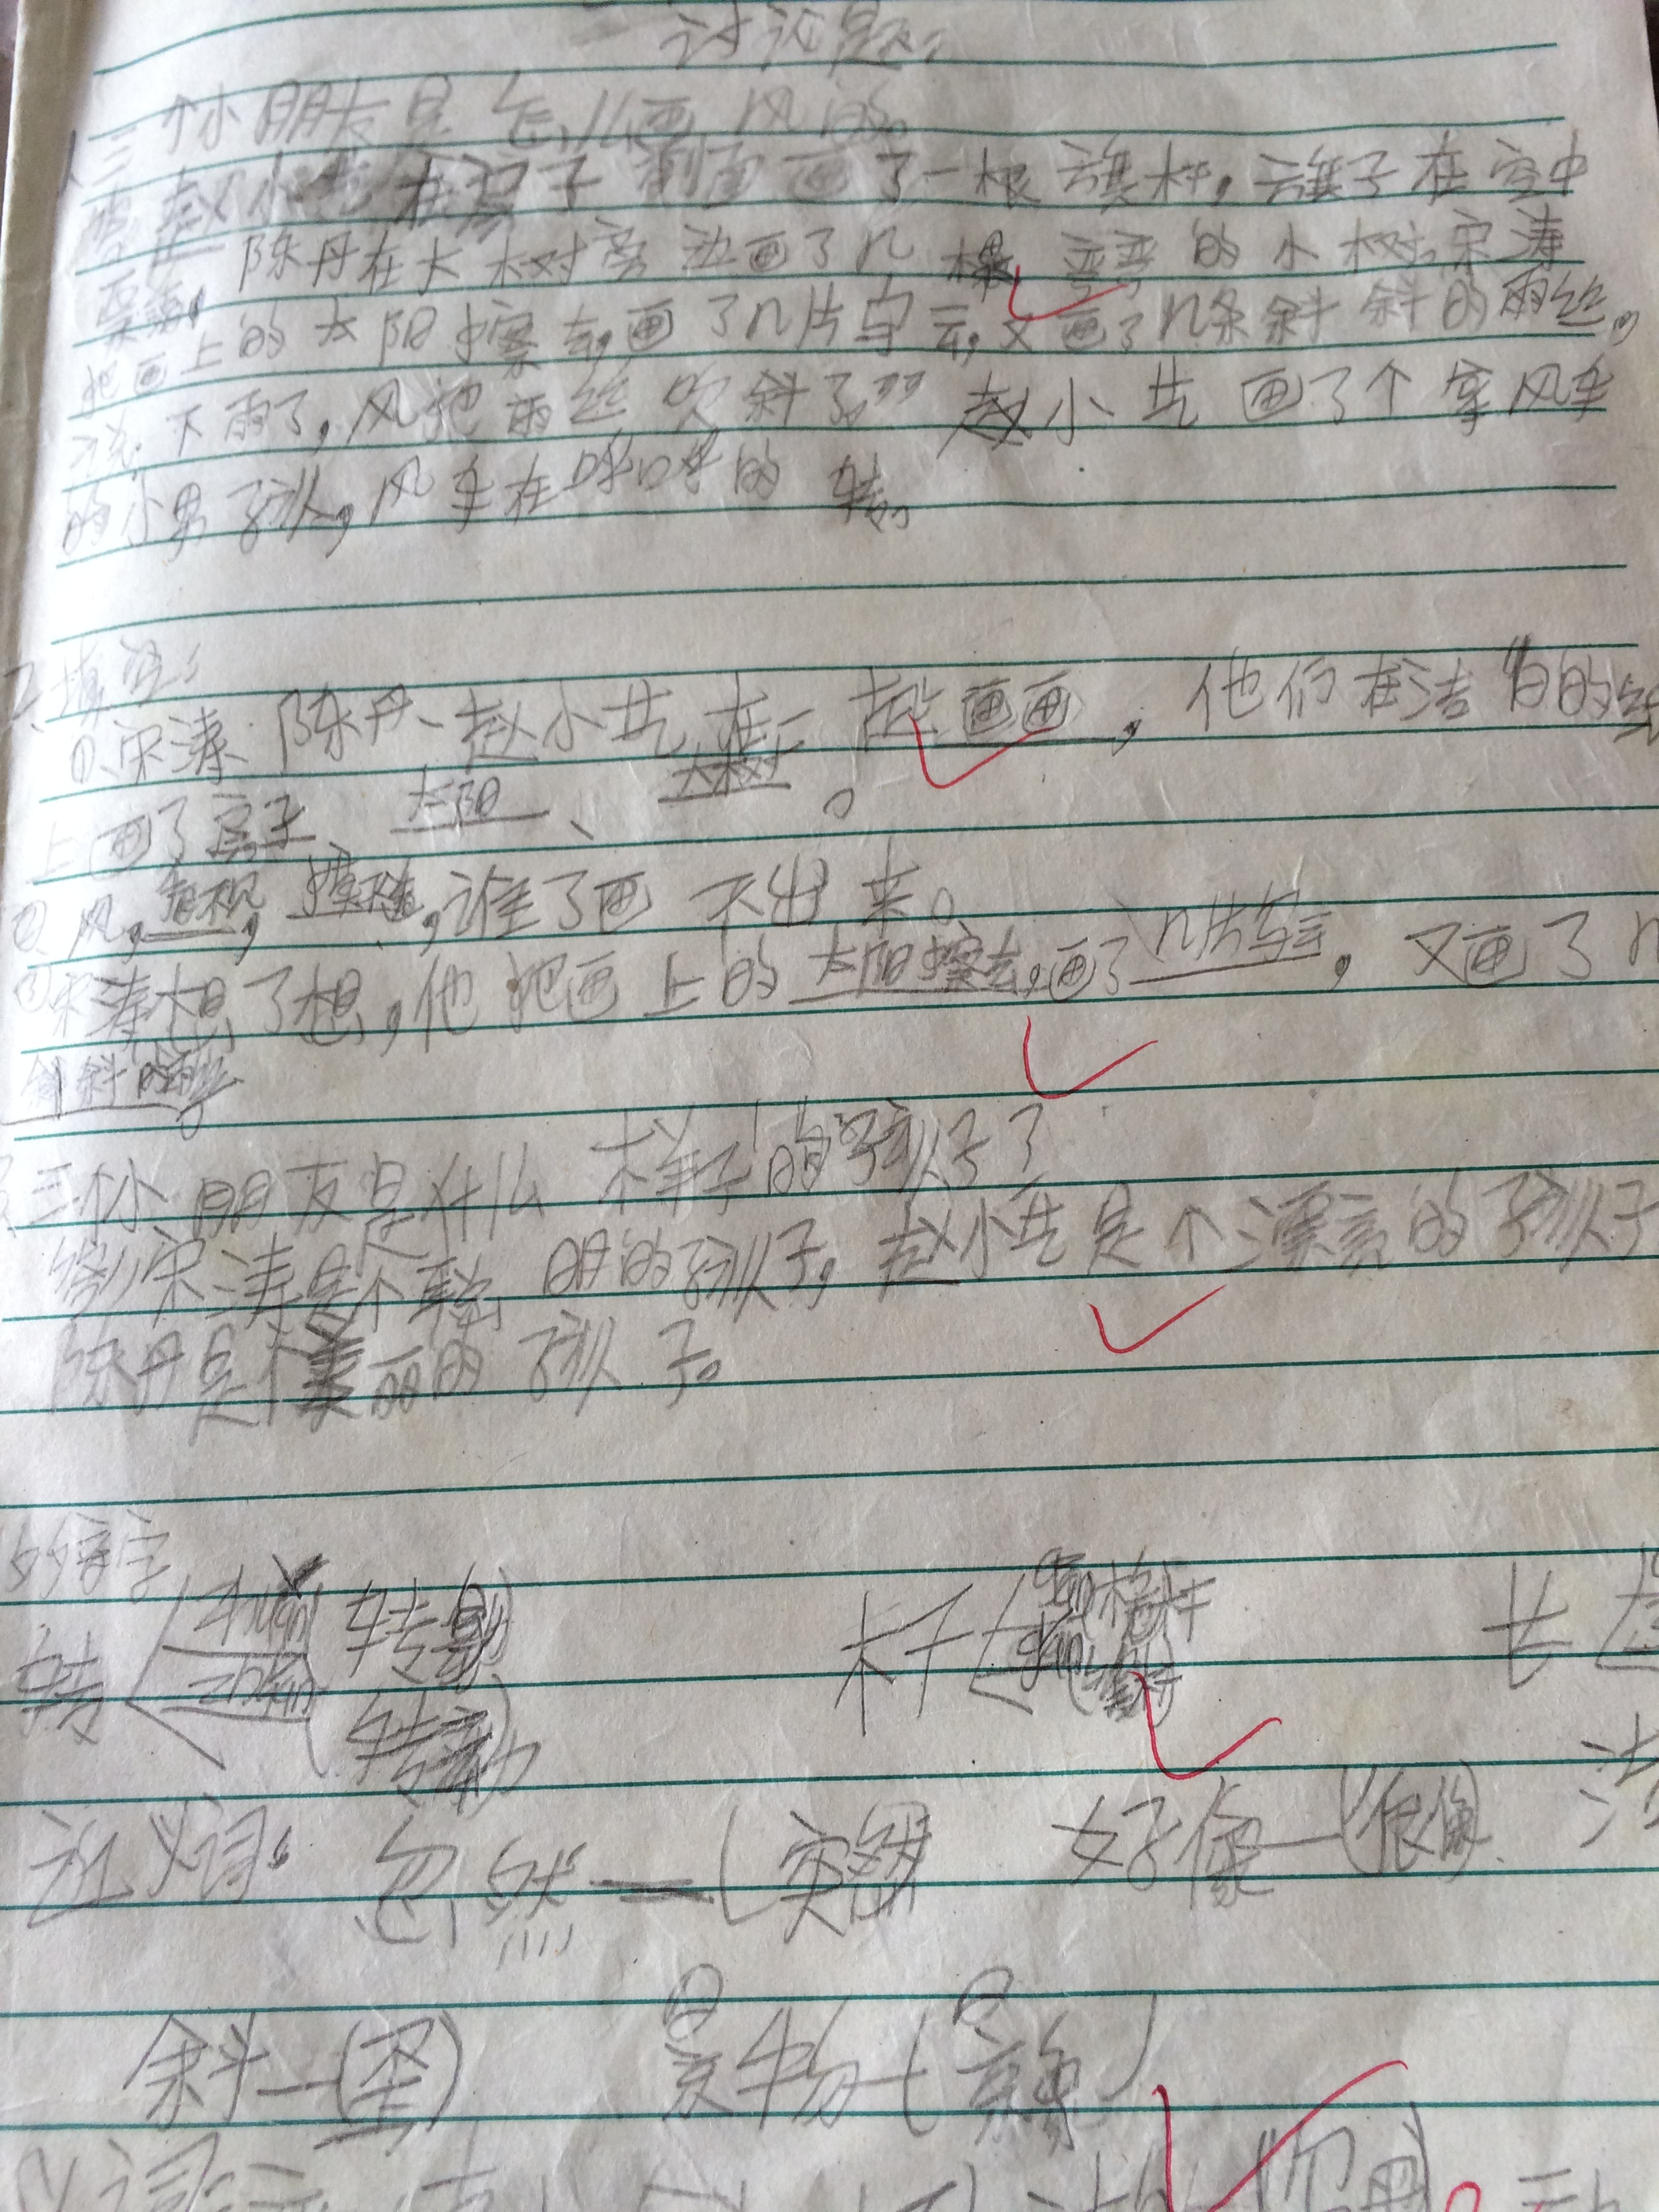 讨论题:
三个小朋友是怎么画风的。
答:赵小艺在房子前面画了一根旗杆,旗子在空中
飘荡,陈丹在大树旁边画了几棵弯弯的小树,宋涛
把画上的太阳擦去,画了几片乌云,又画了几条斜斜的雨丝,
说:下雨了,风把雨丝吹斜了。”赵小艺画了个拿风车
的小男孩,风车在呼呼的转。
2、填空:
①、宋涛、陈丹、赵小艺在一起画画,他们在洁白的纸
上画了房子、太阳、大树。
②、风,看不见,摸不着,谁了画不出来。
宋涛想了想,他把画上的太阳擦去,画了几片乌云,又画了几
斜斜的雨丝。
三个小朋友是什么样子的孩子?
答:宋涛是个聪明的孩子,赵小艺是个漂亮的孩子
陈丹是个美丽的孩子。
多音字
转 zhuàn 转 zhuǎn 转动
杆 gǎn gān 旗杆 长
近义词: 忽然—(突然 好像—(很像) 洁
斜—(歪) 景物—(景色)
义词